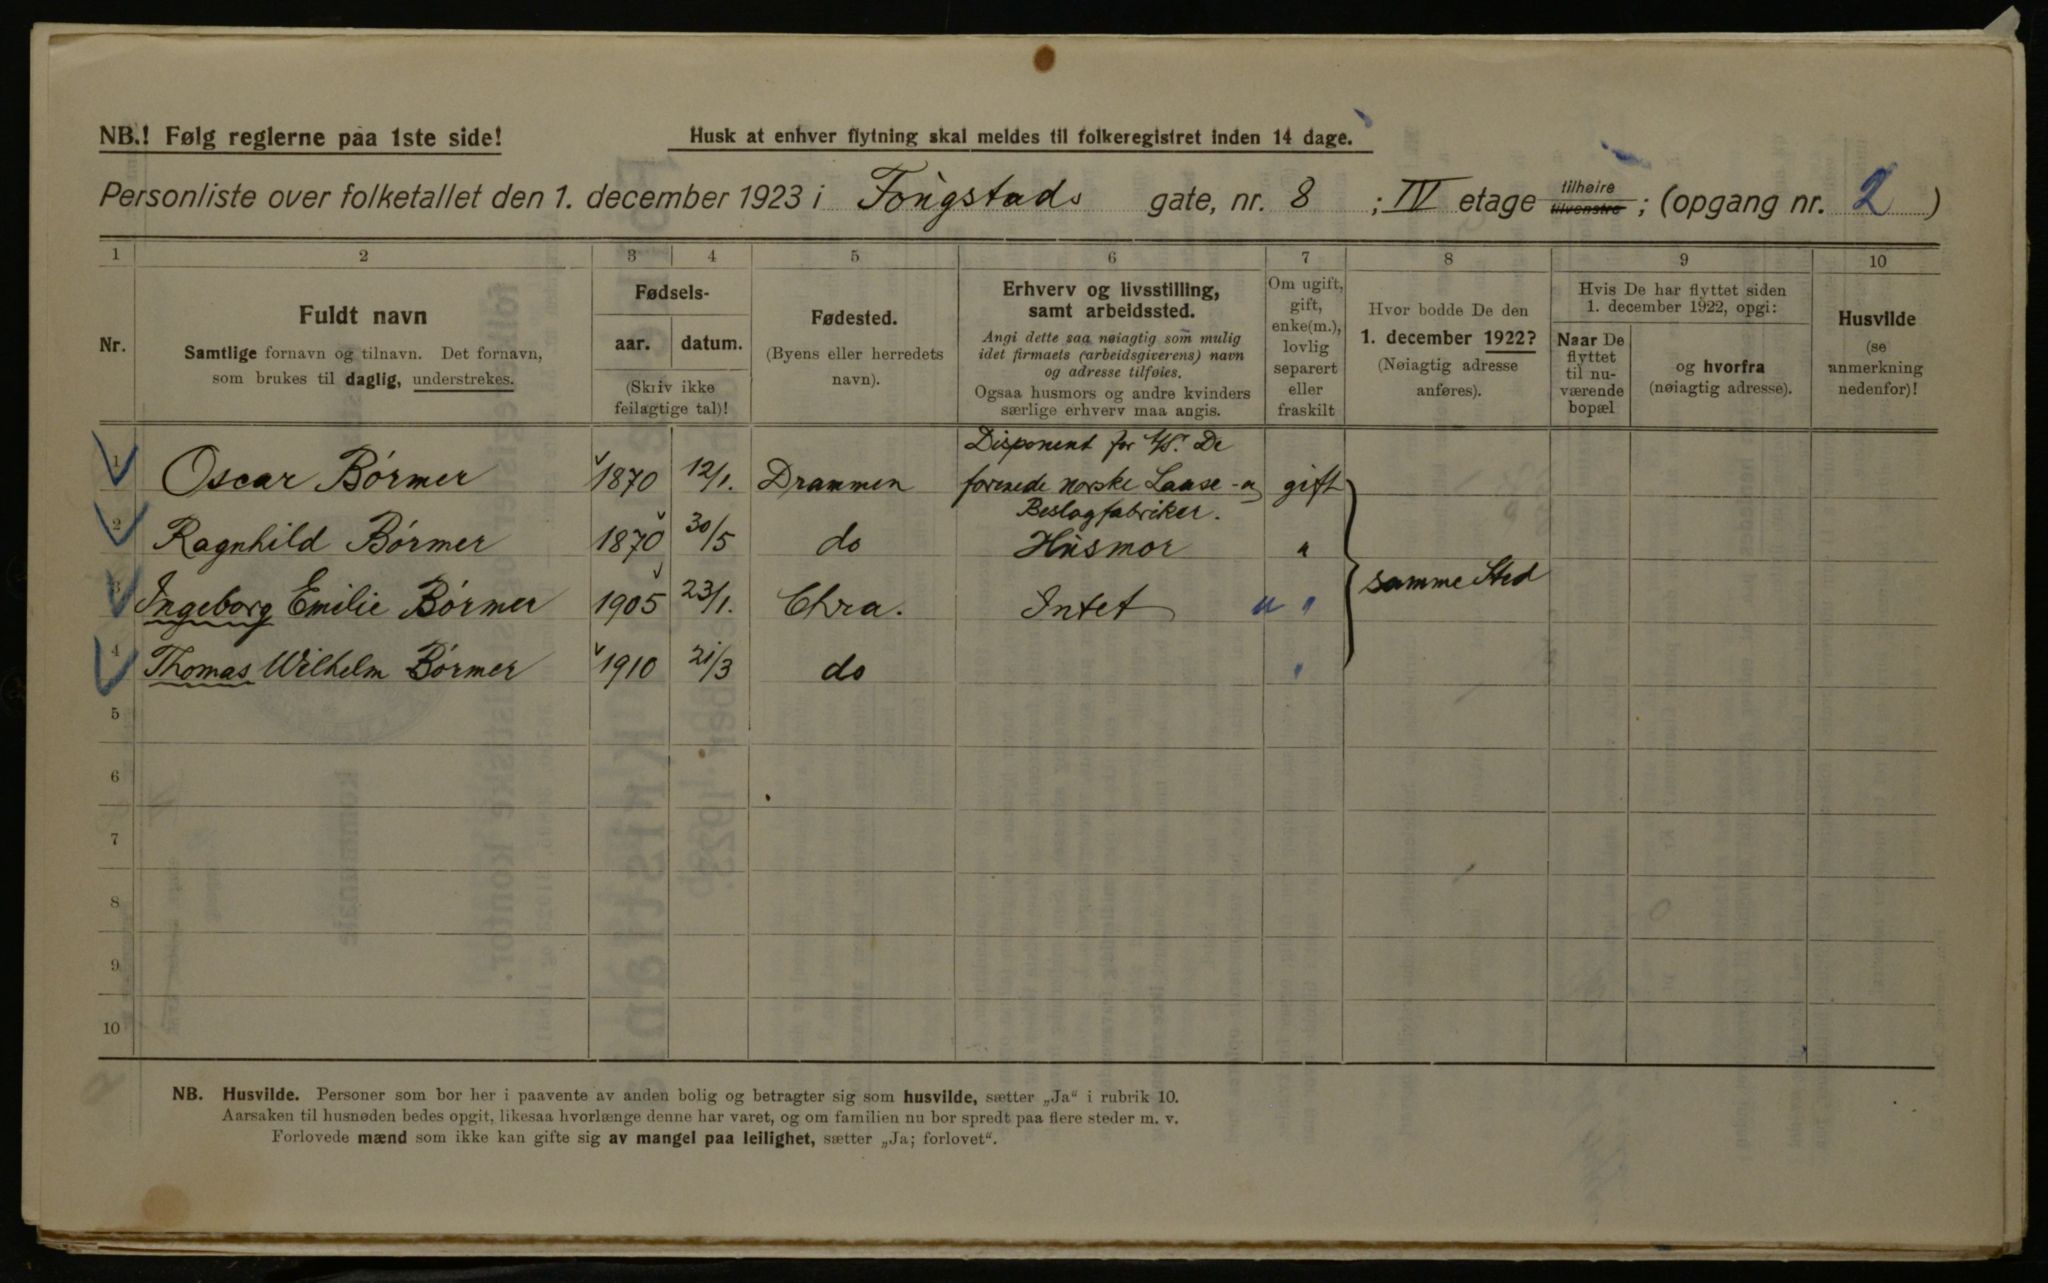 NB.! Følg reglerne paa 1ste side!
Husk at enhver flytning skal meldes til folkeregistret inden 14 dage.
Personliste over folketallet den 1. december 1923 i Fougstads gate, nr. 8 ; IV etage tilhøire tilvenstre ; (opgang nr. 2 )
1 2 3 4 5 6 7 8 9 10
Nr.
Fuldt navn
Samtlige fornavn og tilnavn. Det fornavn,
som brukes til daglig, understrekes.
Fødsels-
aar. datum.
(Skriv ikke
feilagtige tal)!
Fødested.
(Byens eller herredets
navn).
Erhverv og livsstilling,
samt arbeidssted.
Angi dette saa nøiagtig som mulig
idet firmaets (arbeidsgiverens) navn
og adresse tilføies.
Ogsaa husmors og andre kvinders
særlige erhverv maa angis.
Om ugift,
gift,
enke(m.),
lovlig
separert
eller
fraskilt
Hvor bodde De den
1. december 1922?
(Nøiagtig adresse
anføres).
Hvis De har flyttet siden
1. december 1922, opgi:
Naar De
flyttet
til nu-
værende
bopæl
og hvorfra
(nøiagtig adresse).
Husvilde
(se
anmerkning
nedenfor)!
Disponent for A/S. De
1 Oscar Børmer 1870 12/1. Drammen forenede norske Laase- og gift
Beslagfabriker.
2 Ragnhild Børmer 1870 30/5 do Husmor "
samme Sted
3 Ingeborg Emilie Børmer 1905 23/1. Chra. Intet u "
4 Thomas Wilhelm Børmer 1910 21/3 do "
5
6
7
8
9
10
NB. Husvilde. Personer som bor her i paavente av anden bolig og betragter sig som husvilde, sætter „Ja“ i rubrik 10.
Aarsaken til husnøden bedes opgit, likesaa hvorlænge denne har varet, og om familien nu bor spredt paa flere steder m. v.
Forlovede mænd som ikke kan gifte sig av mangel paa leilighet, sætter „Ja; forlovet“.